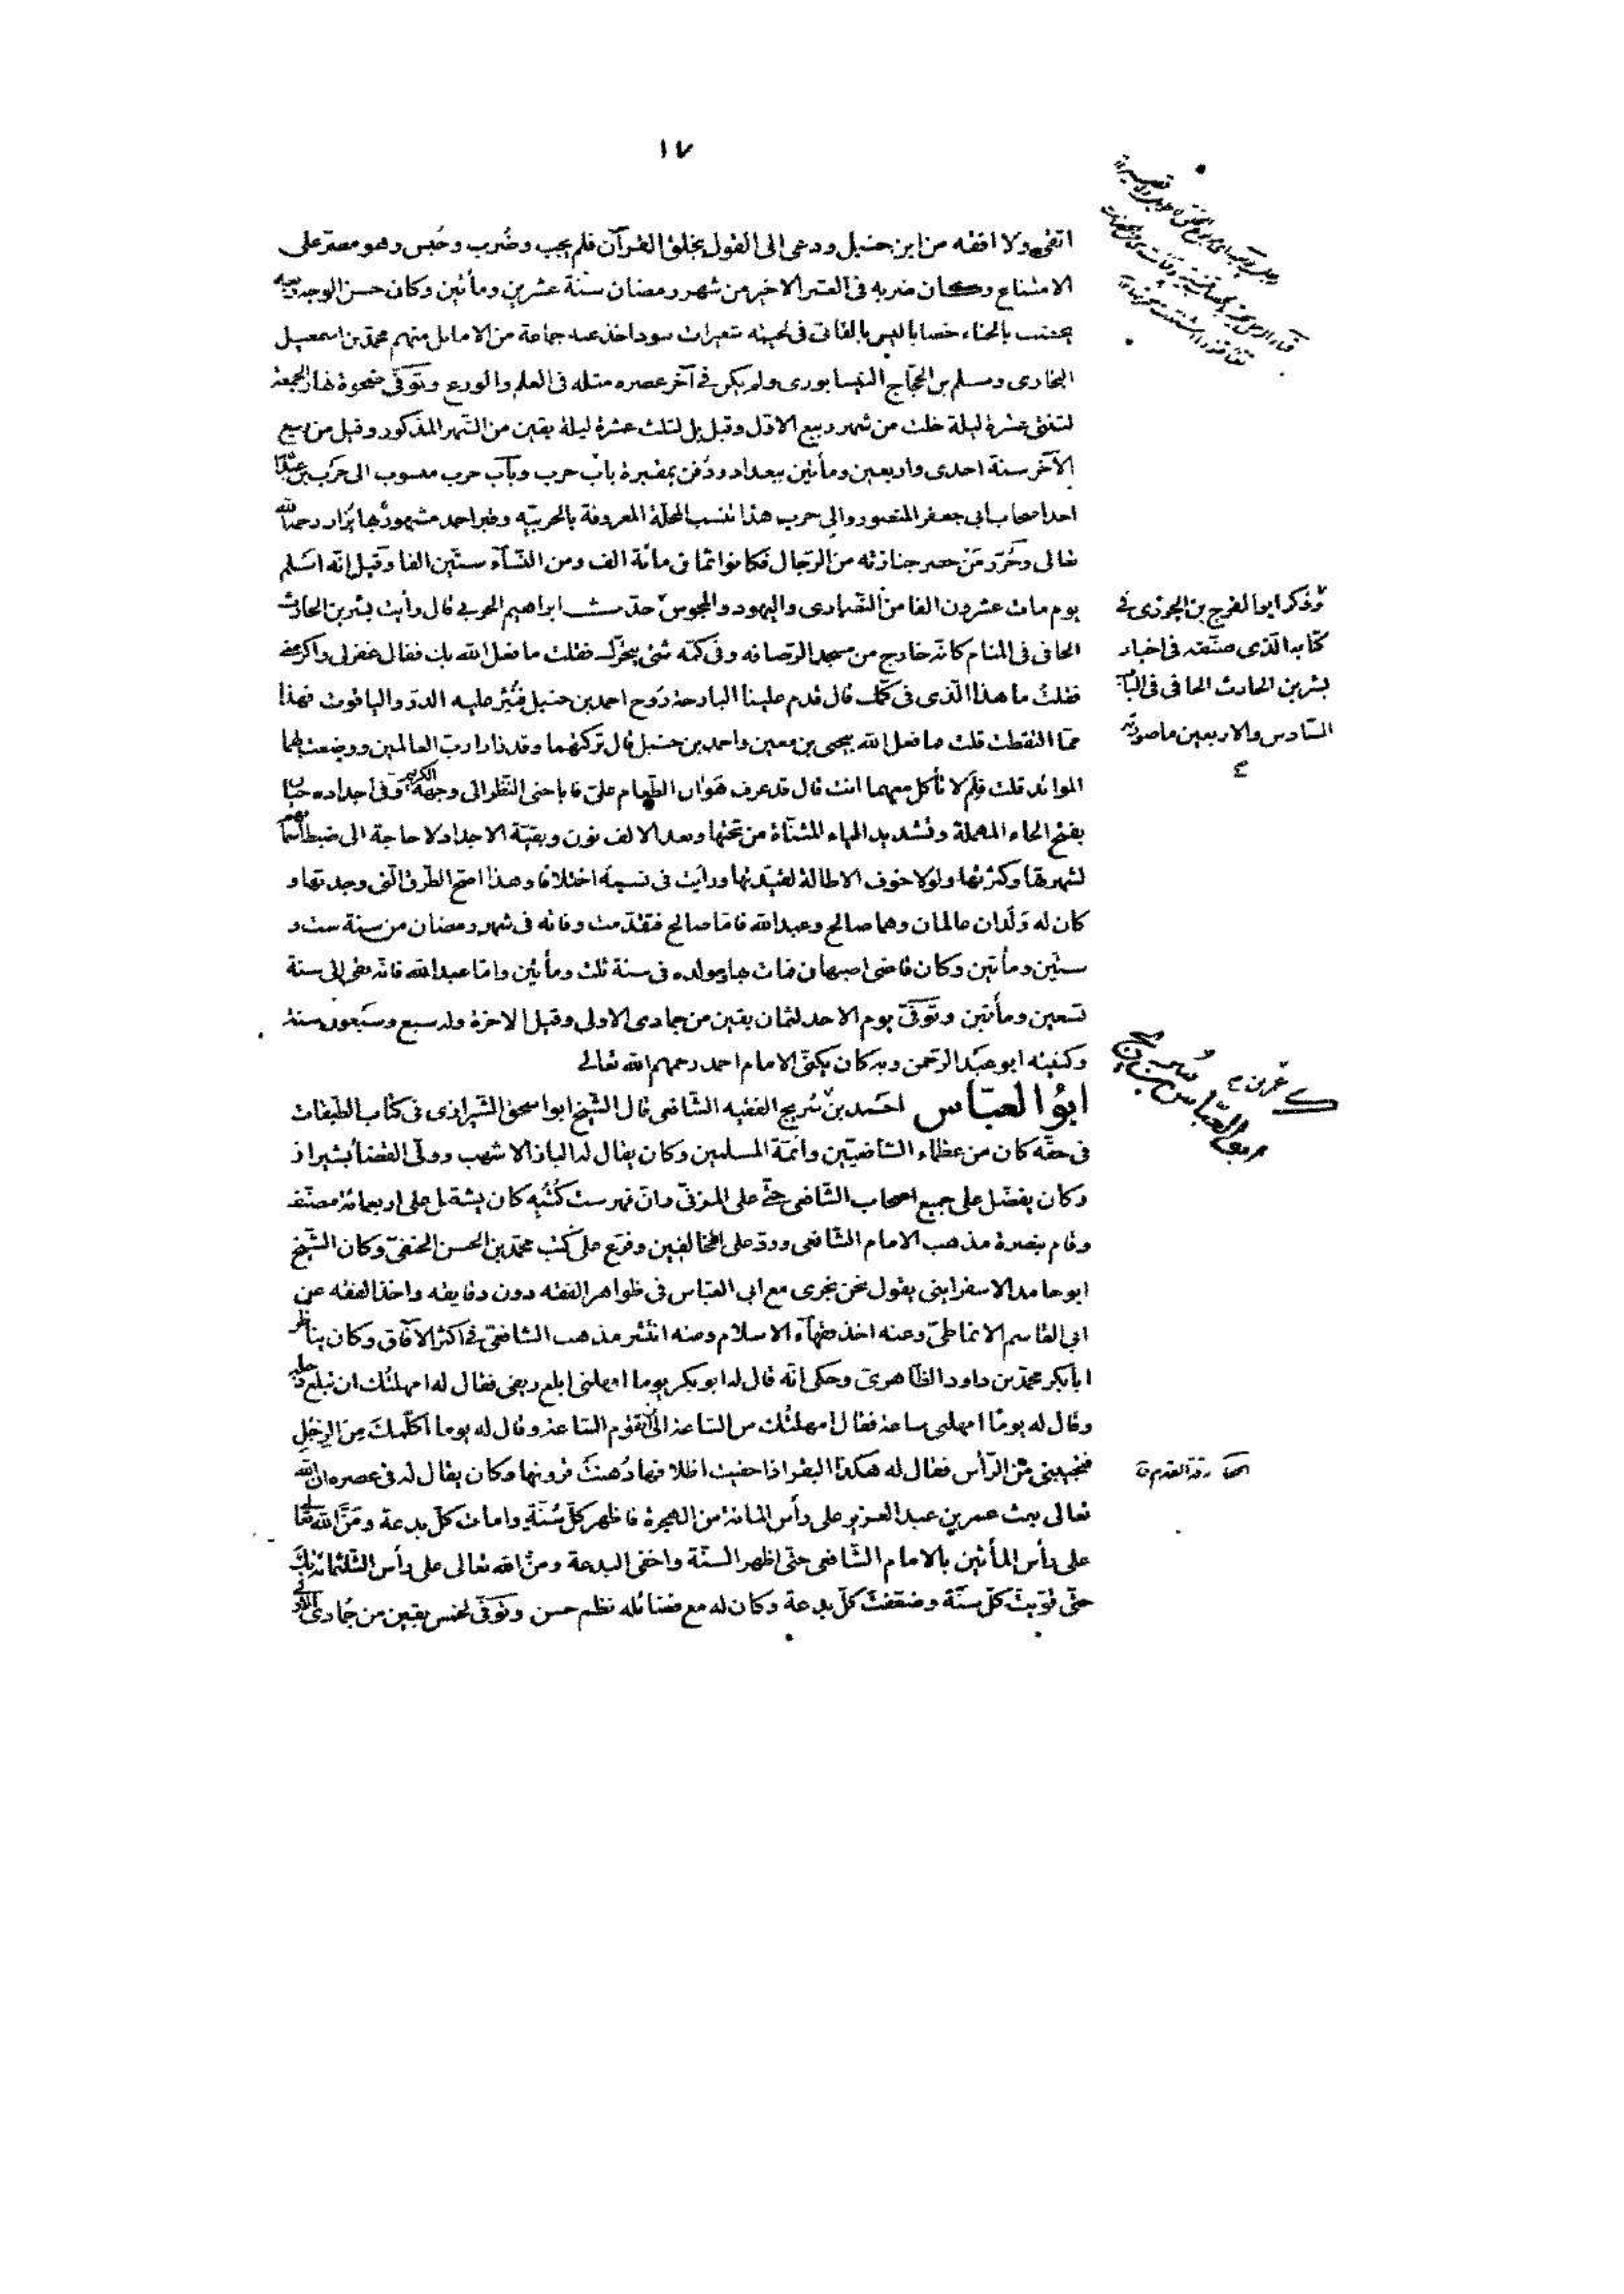 ١٧
اتقى ولا افقه من ابن حنبل ودعى الى القول بخلق القرآن فلم يجب وضُرب وحُبس وهو مصرّ على
الامتناع وكان ضربه فى العشر الاخير من شهر رمضان سنة عشرين ومأتين وكان حسن الوجه
يخضب بالحناء خضابا ليس بالقانى فى لحيته شعيرات سود اخذ عنه جماعة من الاماثل منهم محمّد بن اسمعيل
البخارى ومسلم بن الحجّاج النيسابورى ولم يكن فى آخر عصره مثله فى العلم والورع وتوفّى ضحوة نهار الجمعة
لثنتى عشرة ليلة خلت من شهر ربيع الاوّل وقيل بل لثلث عشرة ليلة بقين من الشهر المذكور وقيل من ربيع
الآخر سنة احدى واربعين ومأتين ببغداد ودُفن بمقبرة باب حرب وباب حرب منسوب الى حرب بن عبد الله
احد اصحاب ابى جعفر المنصور والى حرب هذا تنسب المحلّة المعروفة بالحربيّه وقبر احمد مشهور بها يُزار رحمه الله
تعالى وحُزر مَن حضر جنازته من الرجال فكانوا ثمانى مائة الف ومن النسآء ستّين الفا وقيل انّه اسلم
يوم مات عشرون الفا من النّصارى واليهود والمجوس حدّث ابراهيم الحربى قال رأيت بشر بن الحارث
الحافى فى المنام كانّه خارج من مسجد الرّصافه وفى كمّه شئ يتحرّك فقلت ما فعل الله بك فقال غفر لى واكرمنى
فقلت ما هذا الّذى فى كمّك قال قدم علينا البارحة رَوح احمد بن حنبل فنُثر عليه الدرّ والياقوت فهذا
ممّا التقطت قلت ما فعل الله بيحيى بن معين واحمد بن حنبل قال تركتهما وقد زارا ربّ العالمين ووضعت لهما
الموائد قلت فلِمَ لا تأكل معهما انت قال قد عرف هَوان الطعام علىّ فاباحنى النّظر الى وجهه الكريم وفى اجداده حيّان
بفتح الحاء المهملة وتشديد الياء المثنّاة من تحتها وبعد الالف نون وبقيّة الاجداد لا حاجة الى ضبط اسمائهم
لشهرتها وكثرتها ولولا خوف الاطالة لقيّدتها ورأيت فى نسبه اختلافا وهذا اصحّ الطرق الّتى وجدتها و
كان له وَلَدان عالمان وهما صالح وعبد الله فامّا صالح فتقدّمت وفاته فى شهر رمضان من سنة ست و
ستّين ومأتين وكان قاضى اصبهان فمات بها ومولده فى سنة ثلث ومأتين وامّا عبد الله فانّه بقى الى سنة
تسعين ومأتين وتوفّى يوم الاحد لثمان بقين من جمادى الاولى وقيل الاخرة وله سبع وسبعون سنة
وكنيته ابو عبد الرّحمن وبه كان يكنّى الامام احمد رحمهم الله تعالى
ابوُ العبّاس احمد بن سُريج الفقيه الشّافعى قال الشيخ ابو اسحق الشيرازى فى كتاب الطبقات
فى حقّه كان من عظماء الشافعيّين وائمّة المسلمين وكان يقال له الباز الاشهب وولّى القضأ بشيراز
وكان يفضّل على جميع اصحاب الشّافعى حتّى على المزنى وانّ فهرست كُتُبه كان يشتمل على اربعمائة مصنّف
وقام بنصرة مذهب الامام الشّافعى وردّ على المخالفين وفرّع على كُتب محمّد بن الحسن الحنفىّ وكان الشيخ
ابو حامد الاسفراينى يقول نحن نجرى مع ابى العبّاس فى ظواهر الفقه دون دقايقه واخذ الفقه عن
ابى القاسم الانماطىّ وعنه اخذ فقهآء الاسلام ومنه انتشر مذهب الشافعىّ فى اكثر الآفاق وكان يناظر
ابا بكر محمّد بن داود الظّاهرى وحكى انّه قال له ابو بكر يوما امهلنى ابلع ريقى فقال له امهلتُك ان تبلع دجله
وقال له يومًا امهلنى ساعة فقال امهلتُك من الساعة الى ان تقوم السّاعة وقال له يوما اكلّمك مِنَ الرِجْلِ
فتجيبنى مِن الرّأس فقال له هكذا البقر اذا حفيت اظلافها دُهنت قرونها وكان يقال له فى عصره انّ الله
تعالى بعث عمر بن عبد العزيز على رأس المائة من الهجرة فاظهر كلّ سُنّة وامات كلّ بدعة ومَنّ الله تعالى
على رأس المأتين بالامام الشّافعى حتّى اظهر السنّة واخفى البدعة ومنّ الله تعالى على رأس الثلثمائة بك
حتّى قوّيت كلّ سنّة وضعّفت كلّ بدعة وكان له مع فضائله نظم حسن وتوفّى لخمس بقين من جُمادى الاولى
وذكر ابو الفرج بن الجوزى فى
كتابه الّذى صنّفه فى اخبار
بشر بن الحارث الحافى فى الباب
السّادس والاربعين ما صورته
ابو العبّاس بن سُريج